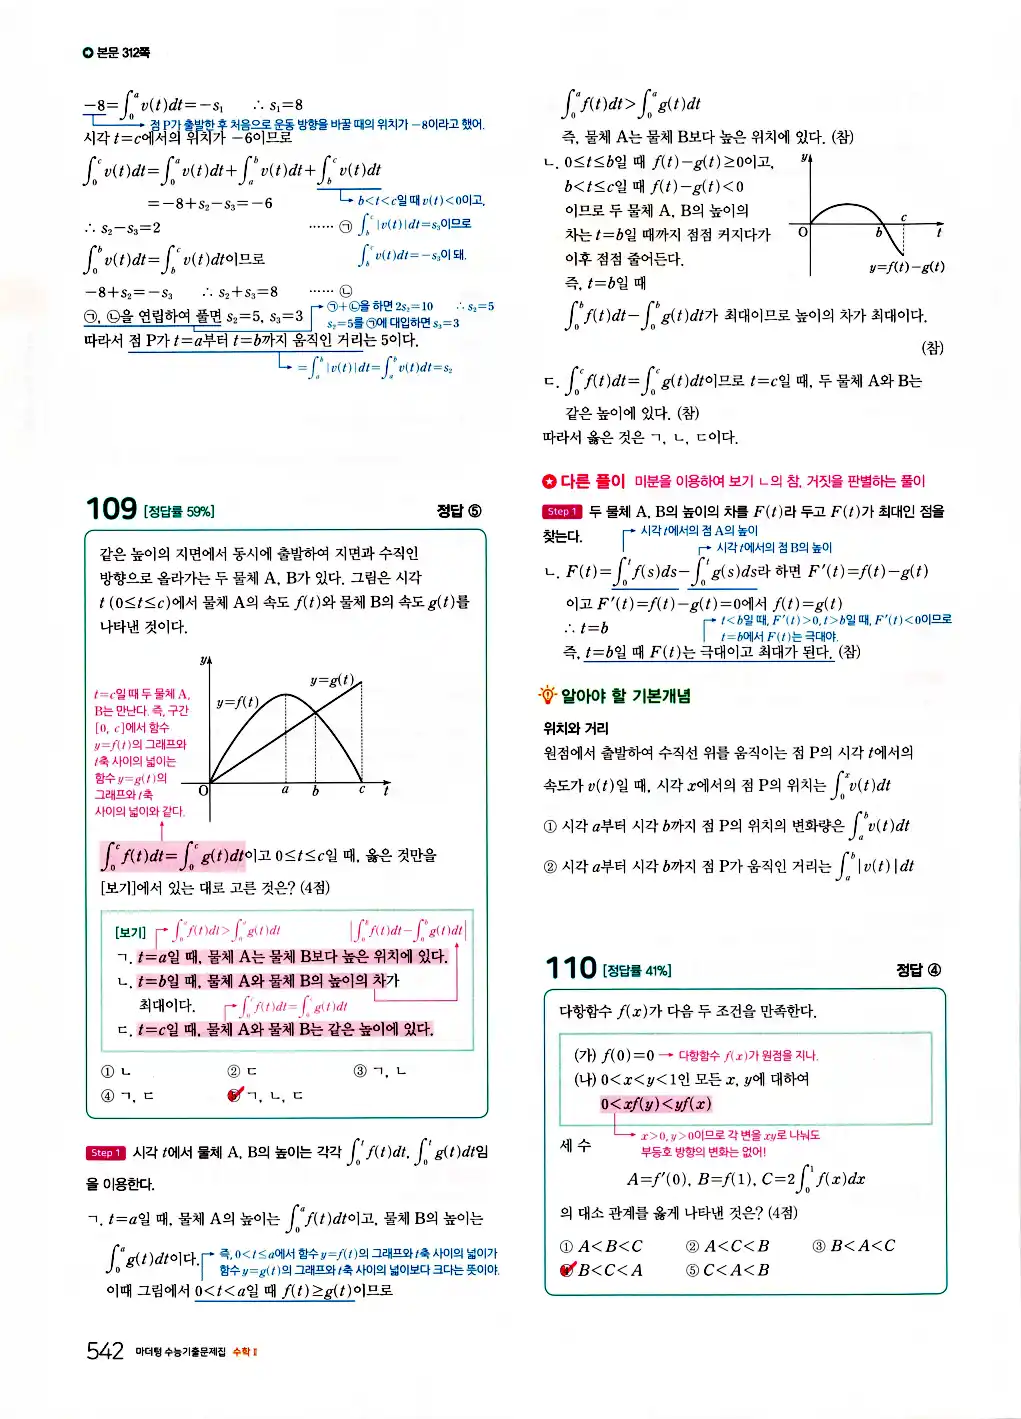 본문 312쪽
-8=∫₀ᵃ v(t)dt=-s₁ ∴ s₁=8
점 P가 출발한 후 처음으로 운동 방향을 바꿀 때의 위치가 -8이라고 했어.
시각 t=c에서의 위치가 -6이므로
∫₀ᶜ v(t)dt=∫₀ᵃ v(t)dt+∫ₐᵇ v(t)dt+∫_b^c v(t)dt
=-8+s₂-s₃=-6
b<t<c일 때 v(t)<0이고,
∴ s₂-s₃=2 ⋯⋯ ㉠
∫_b^c |v(t)|dt=s₃이므로
∫₀ᵇ v(t)dt=∫_b^c v(t)dt이므로
∫_b^c v(t)dt=-s₃이 돼.
-8+s₂=-s₃ ∴ s₂+s₃=8 ⋯⋯ ㉡
㉠+㉡을 하면 2s₂=10 ∴ s₂=5
㉠, ㉡을 연립하여 풀면 s₂=5, s₃=3
s₂=5를 ㉠에 대입하면 s₃=3
따라서 점 P가 t=a부터 t=b까지 움직인 거리는 5이다.
=∫ₐᵇ |v(t)|dt=∫ₐᵇ v(t)dt=s₂
109 [정답률 59%] 정답 ⑤
같은 높이의 지면에서 동시에 출발하여 지면과 수직인
방향으로 올라가는 두 물체 A, B가 있다. 그림은 시각
t (0≤t≤c)에서 물체 A의 속도 f(t)와 물체 B의 속도 g(t)를
나타낸 것이다.
t=c일 때 두 물체 A,
B는 만난다. 즉, 구간
[0, c]에서 함수
y=f(t)의 그래프와
t축 사이의 넓이는
함수 y=g(t)의
그래프와 t축
사이의 넓이와 같다.
y
y=g(t)
y=f(t)
O a b c t
∫₀ᶜ f(t)dt=∫₀ᶜ g(t)dt이고 0≤t≤c일 때, 옳은 것만을
[보기]에서 있는 대로 고른 것은? (4점)
[보기] ∫₀ᵃ f(t)dt>∫₀ᵃ g(t)dt |∫₀ᵇ f(t)dt-∫₀ᵇ g(t)dt|
ㄱ. t=a일 때, 물체 A는 물체 B보다 높은 위치에 있다.
ㄴ. t=b일 때, 물체 A와 물체 B의 높이의 차가
최대이다. ∫₀ᶜ f(t)dt=∫₀ᶜ g(t)dt
ㄷ. t=c일 때, 물체 A와 물체 B는 같은 높이에 있다.
① ㄴ ② ㄷ ③ ㄱ, ㄴ
④ ㄱ, ㄷ ⑤ ㄱ, ㄴ, ㄷ
Step 1 시각 t에서 물체 A, B의 높이는 각각 ∫₀ᵗ f(t)dt, ∫₀ᵗ g(t)dt임
을 이용한다.
ㄱ. t=a일 때, 물체 A의 높이는 ∫₀ᵃ f(t)dt이고, 물체 B의 높이는
∫₀ᵃ g(t)dt이다.
즉, 0<t≤a에서 함수 y=f(t)의 그래프와 t축 사이의 넓이가
함수 y=g(t)의 그래프와 t축 사이의 넓이보다 크다는 뜻이야.
이때 그림에서 0<t<a일 때 f(t)≥g(t)이므로
542 마더텅 수능기출문제집 수학 Ⅱ
∫₀ᵃ f(t)dt>∫₀ᵃ g(t)dt
즉, 물체 A는 물체 B보다 높은 위치에 있다. (참)
ㄴ. 0≤t≤b일 때 f(t)-g(t)≥0이고,
b<t≤c일 때 f(t)-g(t)<0
이므로 두 물체 A, B의 높이의
차는 t=b일 때까지 점점 커지다가
이후 점점 줄어든다.
즉, t=b일 때
y
O b c t
y=f(t)-g(t)
∫₀ᵇ f(t)dt-∫₀ᵇ g(t)dt가 최대이므로 높이의 차가 최대이다.
(참)
ㄷ. ∫₀ᶜ f(t)dt=∫₀ᶜ g(t)dt이므로 t=c일 때, 두 물체 A와 B는
같은 높이에 있다. (참)
따라서 옳은 것은 ㄱ, ㄴ, ㄷ이다.
다른 풀이 미분을 이용하여 보기 ㄴ의 참, 거짓을 판별하는 풀이
Step 1 두 물체 A, B의 높이의 차를 F(t)라 두고 F(t)가 최대인 점을
찾는다.
시각 t에서의 점 A의 높이
시각 t에서의 점 B의 높이
ㄴ. F(t)=∫₀ᵗ f(s)ds-∫₀ᵗ g(s)ds라 하면 F′(t)=f(t)-g(t)
이고 F′(t)=f(t)-g(t)=0에서 f(t)=g(t)
∴ t=b
t<b일 때, F′(t)>0, t>b일 때, F′(t)<0이므로
t=b에서 F(t)는 극대야.
즉, t=b일 때 F(t)는 극대이고 최대가 된다. (참)
알아야 할 기본개념
위치와 거리
원점에서 출발하여 수직선 위를 움직이는 점 P의 시각 t에서의
속도가 v(t)일 때, 시각 x에서의 점 P의 위치는 ∫₀ˣ v(t)dt
① 시각 a부터 시각 b까지 점 P의 위치의 변화량은 ∫ₐᵇ v(t)dt
② 시각 a부터 시각 b까지 점 P가 움직인 거리는 ∫ₐᵇ |v(t)|dt
110 [정답률 41%] 정답 ④
다항함수 f(x)가 다음 두 조건을 만족한다.
(가) f(0)=0 → 다항함수 f(x)가 원점을 지나.
(나) 0<x<y<1인 모든 x, y에 대하여
0<xf(y)<yf(x)
x>0, y>0이므로 각 변을 xy로 나눠도
부등호 방향의 변화는 없어!
세 수
A=f′(0), B=f(1), C=2∫₀¹ f(x)dx
의 대소 관계를 옳게 나타낸 것은? (4점)
① A<B<C ② A<C<B ③ B<A<C
④ B<C<A ⑤ C<A<B